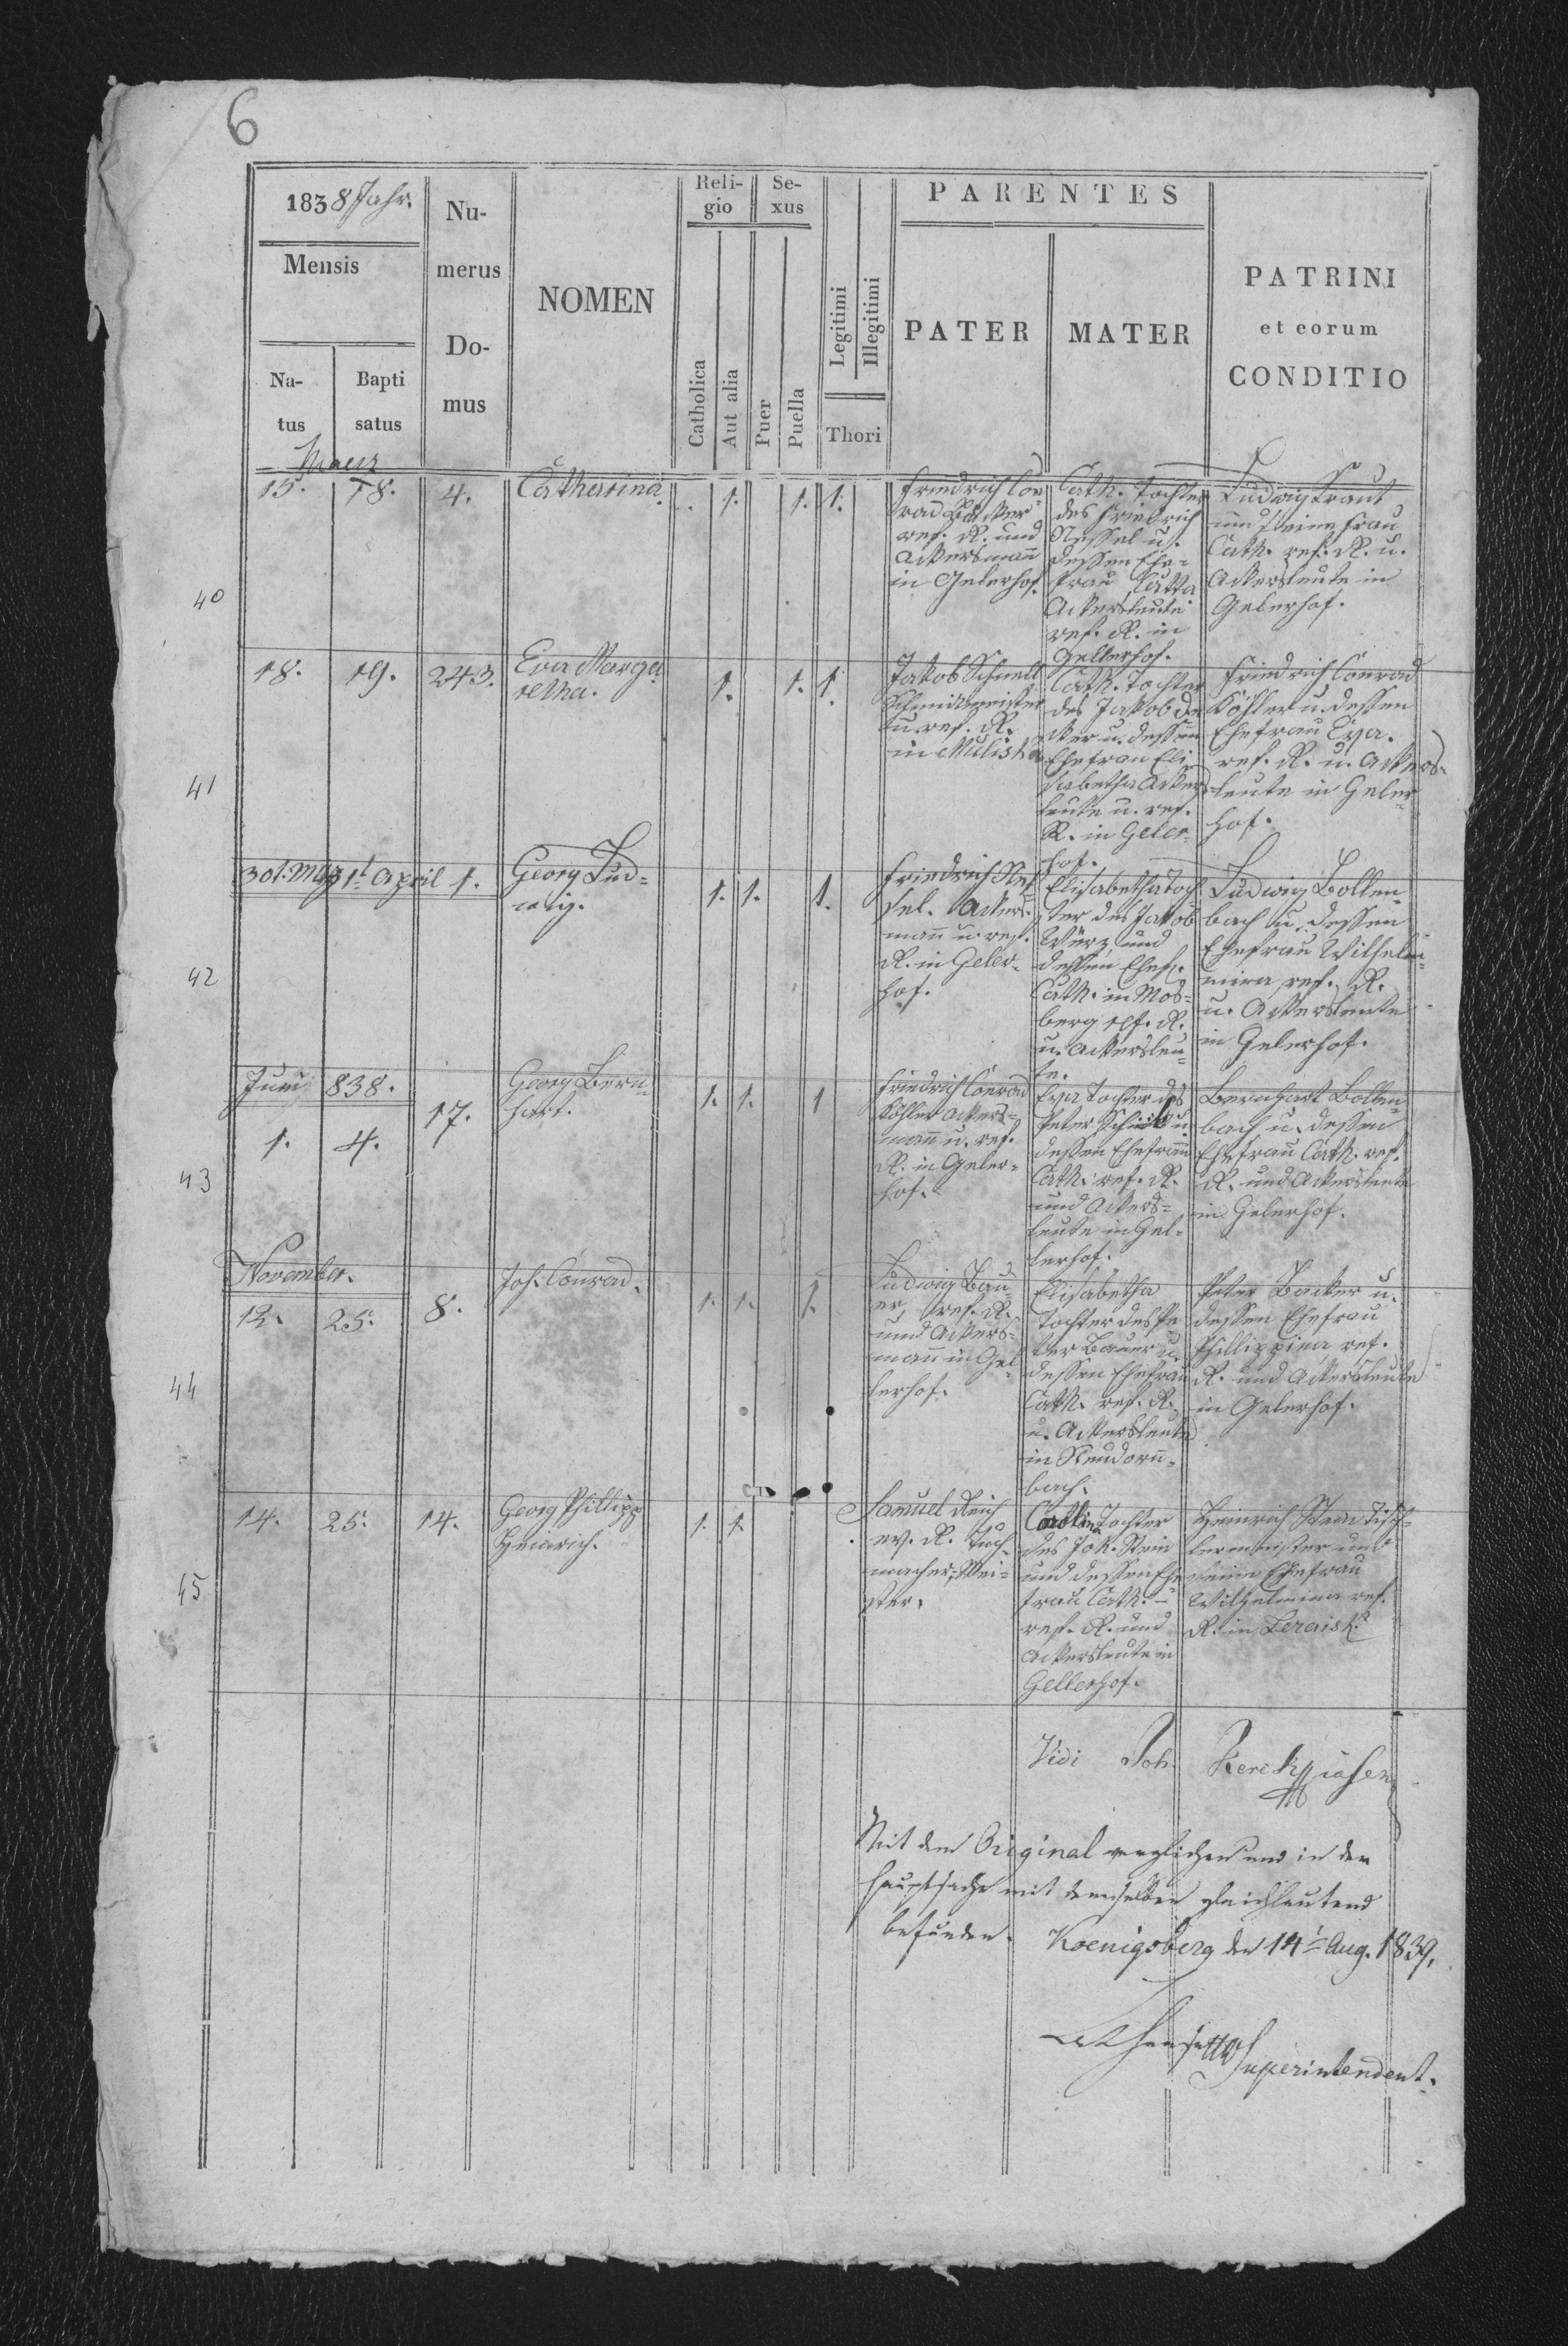 6
1838 Jahr.
Mensis
Na-
tus
Bapti
satus
Nu-
merus
Do-
mus
NOMEN
Reli-
gio
Catholica
Aut alia
Se-
xus
Puer
Puella
Legitimi
Illegitimi
Thori
PARENTES
PATER
MATER
PATRINI
et eorum
CONDITIO
Maerz
40
15.
18.
4.
Catharina.
1.
1.
1.
Friedrich Con=
rad Bäcker
ref. R. und
Ackersmann
in Gelerhof.
Cath. Tochter
des Friedrich
Nessel u.
dessen Ehe=
frau
Ackersleute
ref. R. in
Gellerhof.
Ludwig Kraut
und seine Frau
Cath. ref. R. u.
Ackersleute in
Gelerhof.
41
18.
19.
243.
Eva Marga
retha.
1.
1.
1.
Jakob Schnell
Schmidmeister
u. ref. R.
in
Cath. Tochter
des Jakob De
cker u. dessen
Ehefrau Eli
sabetha Ackers
leute u. ref.
R. in Geler
hof.
Friedrich Conrad
Köhler u. dessen
Ehefrau Eva.
ref. R. u. Ackers-
leute in Geler=
hof.
42
30t. Merz
1t April
1.
Georg Lud=
wig.
1.
1.
1.
Friedrich Nes
sel. Ackers=
mann u. ref.
R. in Geler=
hof.
Elisabetha Toch
ter des Jakob
Würz und
dessen Ehef.
Cath. in Mos=
berg ref. R.
u. Ackersleu=
te.
Ludwig Bollen=
bach u. dessen
Ehefrau Wilhel=
mina ref. R.
u. Ackersleute
in Gelerhof.
43
Juni
838.
1.
4.
17.
Georg Bern=
hart.
1.
1.
1
Friedrich Conrad
Köhler Ackers=
mann u. ref.
R. in Geler=
hof.
Eva Tochter des
Peter
dessen Ehefrau
Cath. ref. R.
und Ackers=
leute in Gel=
lerhof.
Bernhart Bollen=
bach u. dessen
Ehefrau Cath. ref.
R. und Ackersleute
in Gelerhof.
44
November.
12.
25.
8.
Joh. Conrad.
1.
1.
1.
Ludwig Bau=
er, ref. R.
und Ackers=
mann in Gel=
lerhof.
Elisabetha
Tochter des Pe
ter Bauer u.
dessen Ehefrau
Cath. ref. R.
u. Ackersleute
in Neudorn=
bach.
Peter Backer u.
dessen Ehefrau
Phillippina ref.
R. und Ackersleute
in Gelerhof.
45
14.
25.
14.
Georg Phillipp
Heinrich.
1.
1.
Samuel Reich
ev. R. Tuch=
macher=Mei=
ster.
Carolina Tochter
des Joh. Stein
und dessen Ehe
frau Cath. -
ref. R. und
Ackersleute in
Gellerhof.
Heinrich Stein Tisch=
lermeister und
seine Ehefrau
Wilhelmina ref.
R. in
Vidi Joh.
Mit dem Original verglichen und in der
Hauptsache mit demselben gleichlautend
befunden. Koenigsberg den 14t Aug. 1839.
Superintendent.